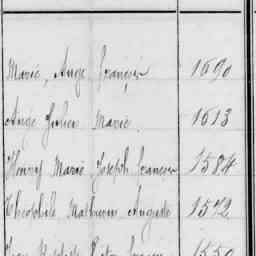 Marie, Ange François 1690
Ange Julien Marie. 1613
Henry Marie Joseph François 1584
Théophile Mathurin Auguste 1572
Jean Baptiste 1550